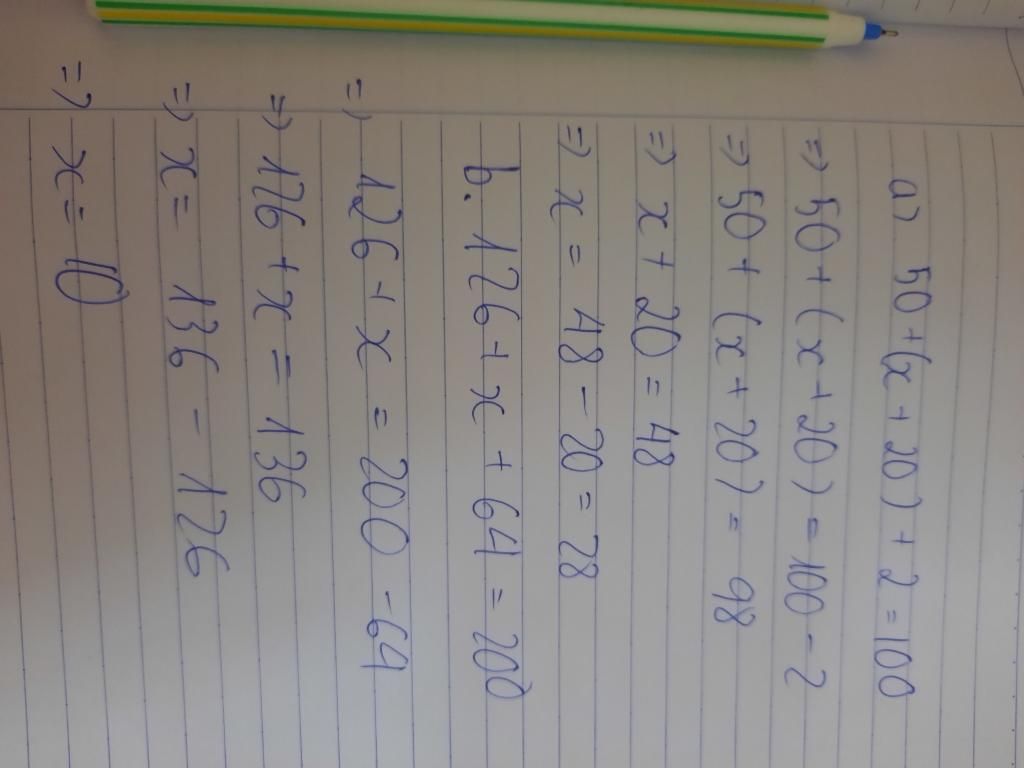 a) 50 + (x + 20) + 2 = 100
=> 50 + (x + 20) = 100 - 2
=> 50 + (x + 20) = 98
=> x + 20 = 48
=> x = 48 - 20 = 28
b. 126 + x + 64 = 200
=> 126 + x = 200 - 64
=> 126 + x = 136
=> x = 136 - 126
=> x = 10